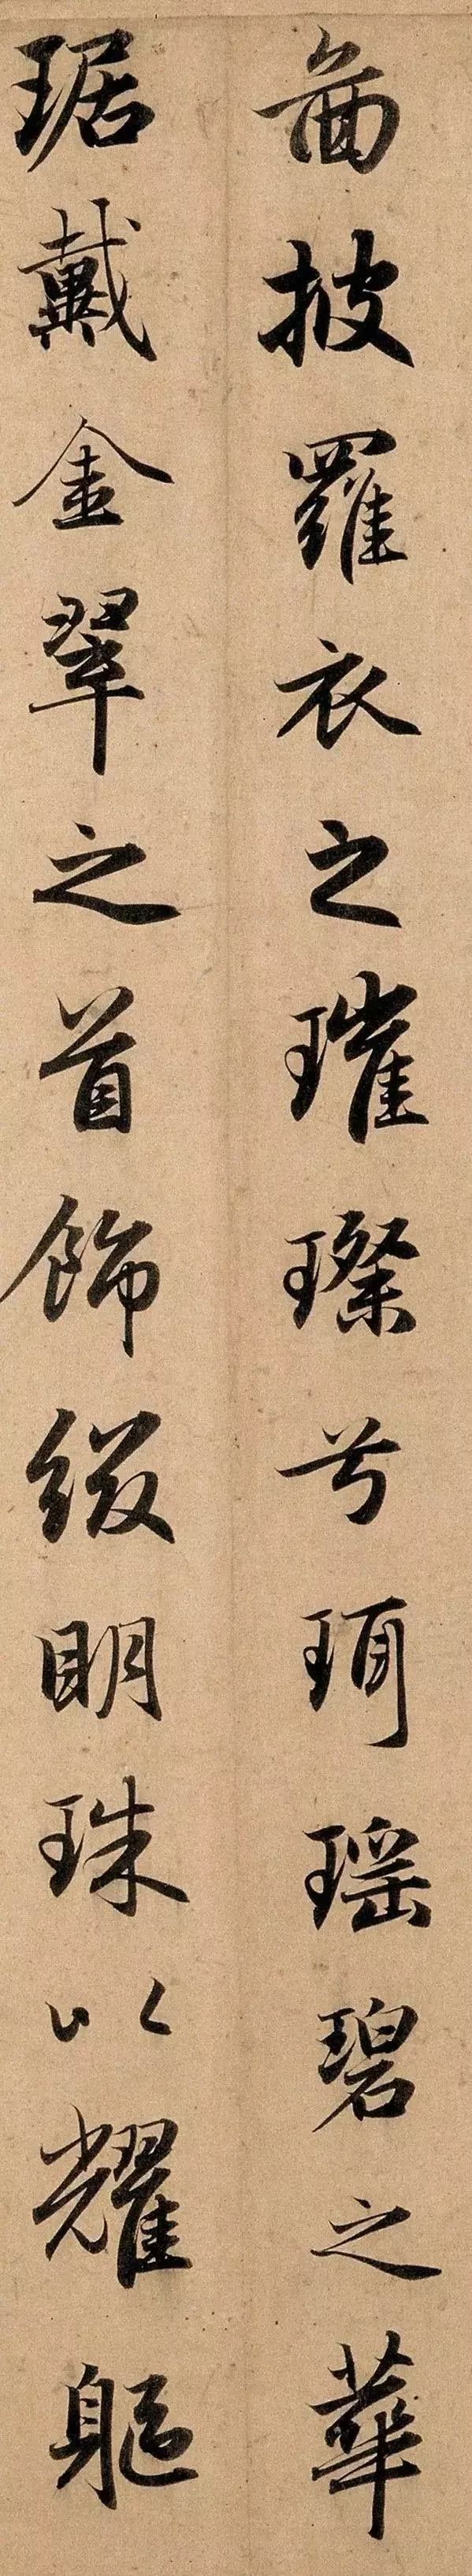 啚披羅衣之璀璨兮珥瑶碧之華
琚戴金翠之首飾綴明珠以耀軀